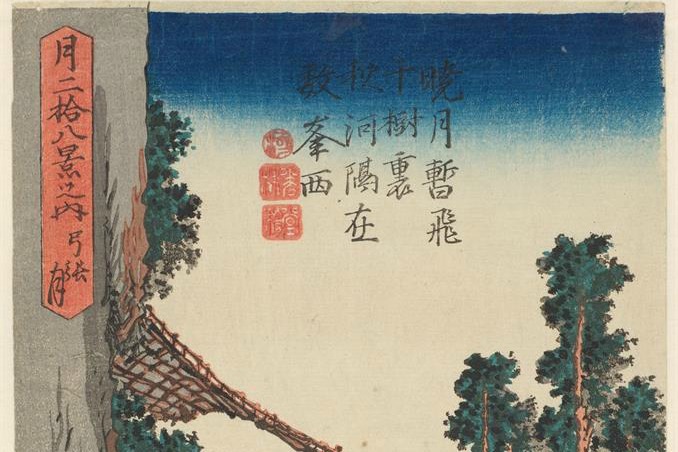 暁月暫飛
千樹裏
秋河隔在
数峯西
月二拾八景之内
弓張月